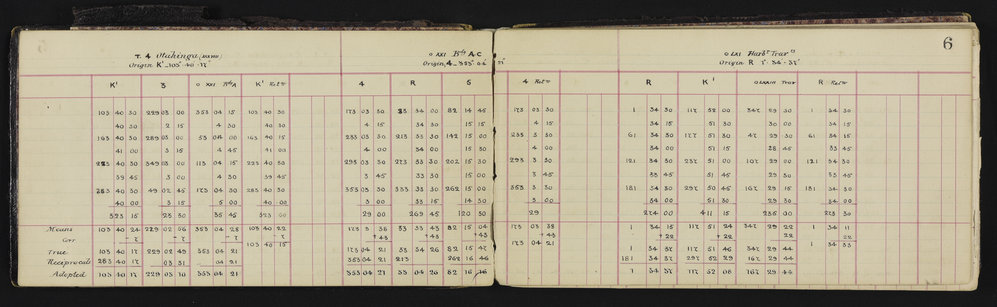 6
T. 4 Otahinga
Origin K' 103 40 17
O XXI Rdg A.C
Origin 4 353 04
O LXI Harbr Trav
Origin R 1 34 37
K' 3 O XXI Rdg A K' Retn
4 R 5 4 Retn
R K' Trav R Retn
103 40 30 229 03 00 353 04 15 103 40 30 173 03 30 34 00 82 14 45 173 03 30 1 34 30 117 52 00 347 29 30 1 34 30
40 30 2 15 4 30 40 30 4 15 34 30 15 15 4 15 34 15 51 30 30 00 34 15
163 40 30 289 03 00 53 04 00 163 40 15 233 03 30 213 33 30 142 15 00 233 3 30 61 34 30 177 51 30 47 29 30 61 34 15
41 00 3 15 4 45 41 00 4 00 34 00 15 30 4 00 34 00 51 15 28 45 33 45
223 40 30 349 03 00 113 04 15 223 40 30 293 03 30 273 33 30 202 15 30 293 3 30 121 34 30 237 51 00 107 29 00 121 34 30
39 45 3 00 4 30 39 45 3 45 33 30 15 00 3 45 33 45 51 45 29 30 33 45
283 40 30 49 02 45 173 04 30 283 40 30 353 03 30 333 33 30 262 15 00 353 3 30 181 34 30 297 50 45 167 29 15 181 34 30
40 00 3 15 5 00 40 00 3 00 33 15 14 30 3 00 34 00 51 30 29 30 34 00
323 15 23 30 35 45 323 00 29 00 269 45 120 30 29 274 00 411 15 235 00 273 30
Means 103 40 24 229 02 56 353 04 28 103 40 22 173 3 38 33 33 43 82 15 04 173 03 38 1 34 15 117 51 24 347 29 22 1 34 11
Corr - 7 - 7 - 7 - 7 + 43 + 43 + 43 + 22 + 22 22 22
103 40 15 173 04 21 1 34 33
True 103 40 17 229 02 49 353 04 21 173 04 21 33 34 26 82 15 47 1 34 37 117 51 46 347 29 44
Reciprocals 283 40 17 03 31 04 21 353 04 21 213 262 16 46 181 34 37 297 52 29 167 29 44
Adopted 103 40 17 229 03 10 353 04 21 353 04 21 33 04 26 82 16 16 1 34 37 117 52 08 167 29 44